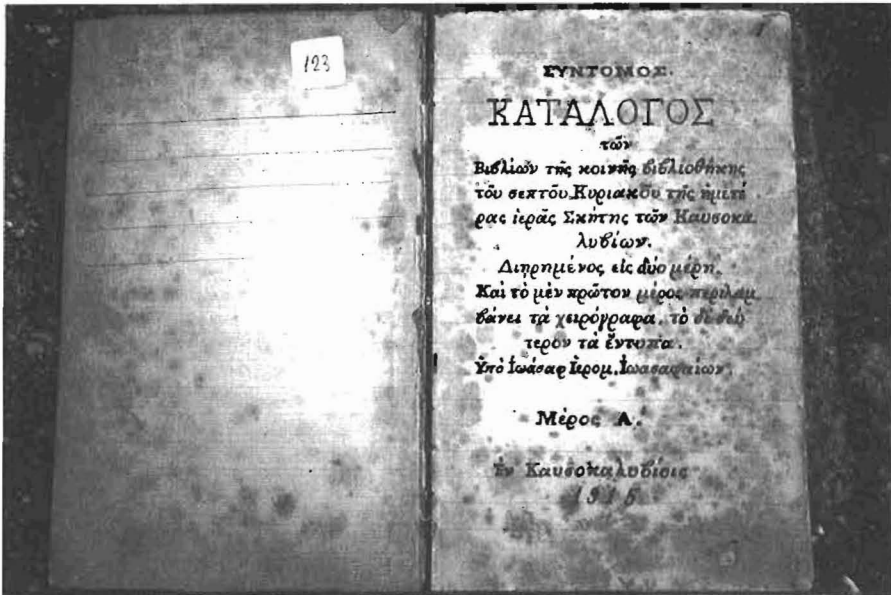 123
ΣΥΝΤΟΜΟΣ.
ΚΑΤΑΛΟΓΟΣ
τῶν
Βιβλίων τῆς κοινῆς βιβλιοθήκης
τοῦ σεπτοῦ Κυριακοῦ τῆς ἡμετέ
ρας ἱερᾶς Σκήτης τῶν Καυσοκα
λυβίων.
Διῃρημένος εἰς δύο μέρη.
Καὶ τὸ μὲν πρῶτον μέρος περιλαμ
βάνει τὰ χειρόγραφα, τὸ δὲ δεύ
τερον τὰ ἔντυπα.
Ὑπὸ Ἰωάσαφ Ἱερομ. Ἰωασαφαίων.
Μέρος Α.
Ἐν Καυσοκαλυβίοις